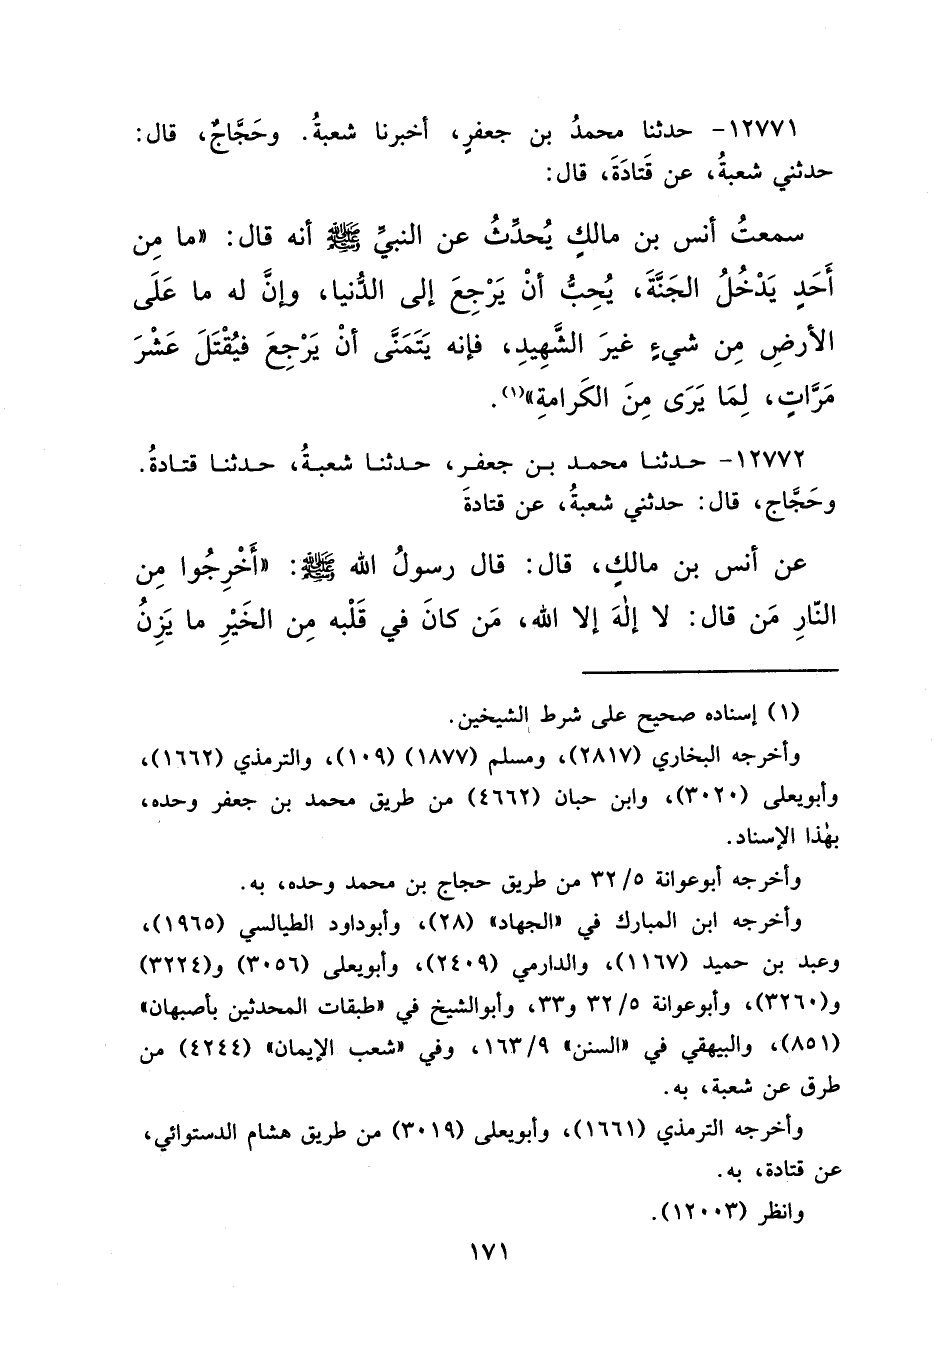 ١٢٧٧١- حدثنا محمدُ بن جعفرٍ، أخبرنا شعبةُ. وحَجَّاجٌ، قال:
حدثني شعبةُ، عن قَتادَةَ، قال:
سمعتُ أنس بن مالكٍ يُحدِّثُ عن النبيِّ ﷺ أنه قال: «ما مِن
أَحَدٍ يَدْخُلُ الجَنَّةَ، يُحِبُّ أنْ يَرْجِعَ إلى الدُّنيا، وإنَّ له ما عَلَى
الأرضِ مِن شيءٍ غيرَ الشَّهِيدِ، فإنه يَتَمَنَّى أنْ يَرْجِعَ فيُقْتَلَ عَشْرَ
مَرَّاتٍ، لِمَا يَرَى مِنَ الكَرامةِ»(١).
١٢٧٧٢- حدثنا محمد بن جعفر، حدثنا شعبةُ، حدثنا قتادةُ.
وحَجَّاج، قال: حدثني شعبةُ، عن قتادةَ
عن أنس بن مالكٍ، قال: قال رسولُ الله ﷺ: «أَخْرِجُوا مِن
النّارِ مَن قال: لا إلٰهَ إلا الله، مَن كانَ في قَلْبه مِن الخَيْرِ ما يَزِنُ
(١) إسناده صحيح على شرط الشيخين.
وأخرجه البخاري (٢٨١٧)، ومسلم (١٨٧٧) (١٠٩)، والترمذي (١٦٦٢)،
وأبويعلى (٣٠٢٠)، وابن حبان (٤٦٦٢) من طريق محمد بن جعفر وحده،
بهٰذا الإسناد.
وأخرجه أبوعوانة ٣٢/٥ من طريق حجاج بن محمد وحده، به.
وأخرجه ابن المبارك في «الجهاد» (٢٨)، وأبوداود الطيالسي (١٩٦٥)،
وعبد بن حميد (١١٦٧)، والدارمي (٢٤٠٩)، وأبويعلى (٣٠٥٦) و(٣٢٢٤)
و(٣٢٦٠)، وأبوعوانة ٣٢/٥ و٣٣، وأبوالشيخ في «طبقات المحدثين بأصبهان»
(٨٥١)، والبيهقي في «السنن» ١٦٣/٩، وفي «شعب الإيمان» (٤٢٤٤) من
طرق عن شعبة، به.
وأخرجه الترمذي (١٦٦١)، وأبويعلى (٣٠١٩) من طريق هشام الدستوائي،
عن قتادة، به.
وانظر (١٢٠٠٣).
١٧١